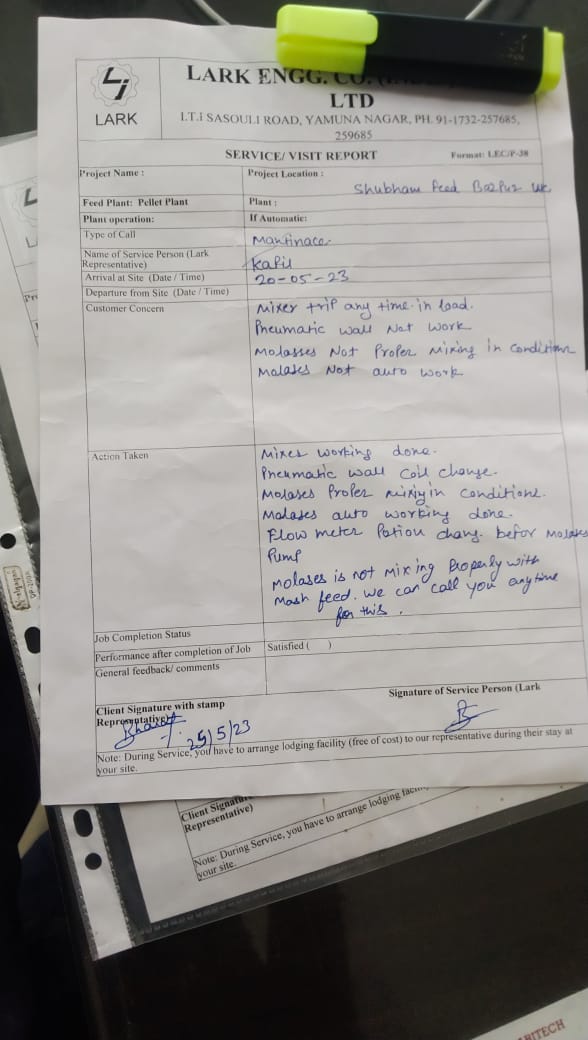 LARK
LARK ENGG. CO.
LTD
I.T.I SASOULI ROAD, YAMUNA NAGAR, PH. 91-1732-257685,
259685
SERVICE/ VISIT REPORT Format: LEC/P-38
Project Name : Project Location :
Shubham Feed Bazpur UK
Feed Plant: Pellet Plant Plant :
Plant operation: If Automatic:
Type of Call Mantinace
Name of Service Person (Lark
Representative) Kapil
Arrival at Site (Date / Time) 20-05-23
Departure from Site (Date / Time)
Customer Concern Mixer trip any time in load.
Pneumatic wall Not work
Molasses Not Proper mixing in condition
Molases Not auto work
Action Taken Mixer working done.
Pneumatic wall coil change.
Molases Proper mixiy in conditions.
Malases auto working done.
Flow meter Pation chang. befor Molases
Pump
Molases is not mixing properly with
mash feed. we can call you anytime
for this.
Job Completion Status
Performance after completion of Job Satisfied ( )
General feedback/ comments
Client Signature with stamp Signature of Service Person (Lark
Representative)
Bharat
25/5/23
Note: During Service, you have to arrange lodging facility (free of cost) to our representative during their stay at
your site.
Client Signature
Representative)
Note: During Service, you have to arrange lodging
your site.